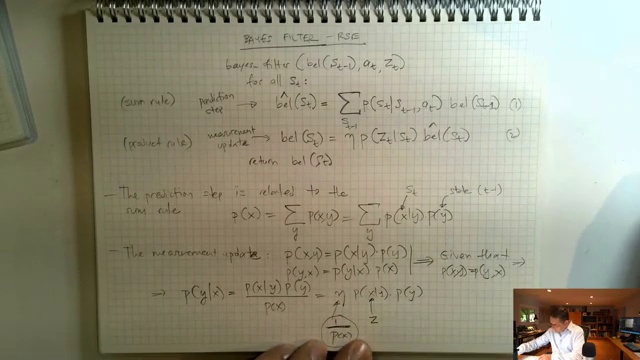 BAYES FILTER - RSE
bayes filter (bel(S_{t-1}), a_t, Z_t)
for all S_t:
(sum rule) prediction step → bel̂(S_t) = ∑_{S_{t-1}} p(S_t|S_{t-1}, a_t) bel(S_{t-1}) (1)
(product rule) measurement update → bel(S_t) = η p(Z_t|S_t) bel̂(S_t) (2)
return bel(S_t)
S_t state (t-1)
- The prediction step is related to the
sum rule p(x) = ∑_y p(x,y) = ∑_y p(x|y) p(y)
- The measurement update: p(x,y) = p(x|y)·p(y)
p(y,x) = p(y|x) p(x) ⟹ Given that p(x,y)=p(y,x) ⟹
⟹ p(y|x) = p(x|y) p(y) / p(x) = η p(x|y)·p(y)
1/p(x) Z